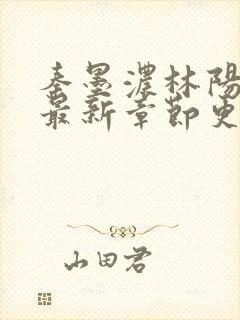 秦墨濃林陽
最新章節更
山田君